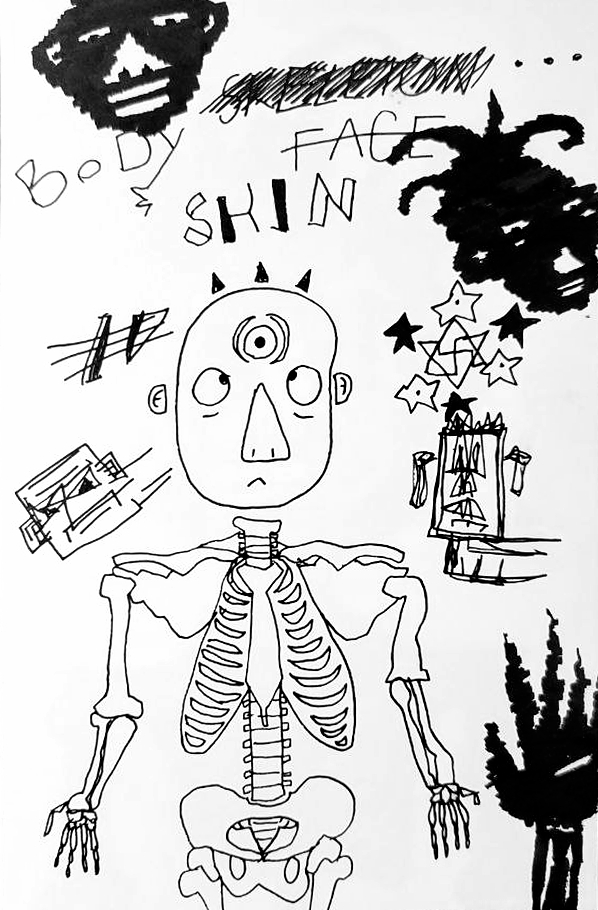 BODY FACE
&
SKIN